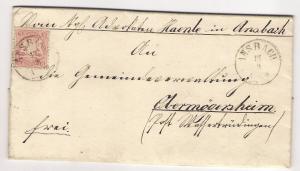 Vom kgl. Advokaten Haenle in Ansbach
An
die Gemeindeverwaltung
Obermögersheim
frei.
(Post Wassertrüdingen)
ANSBACH